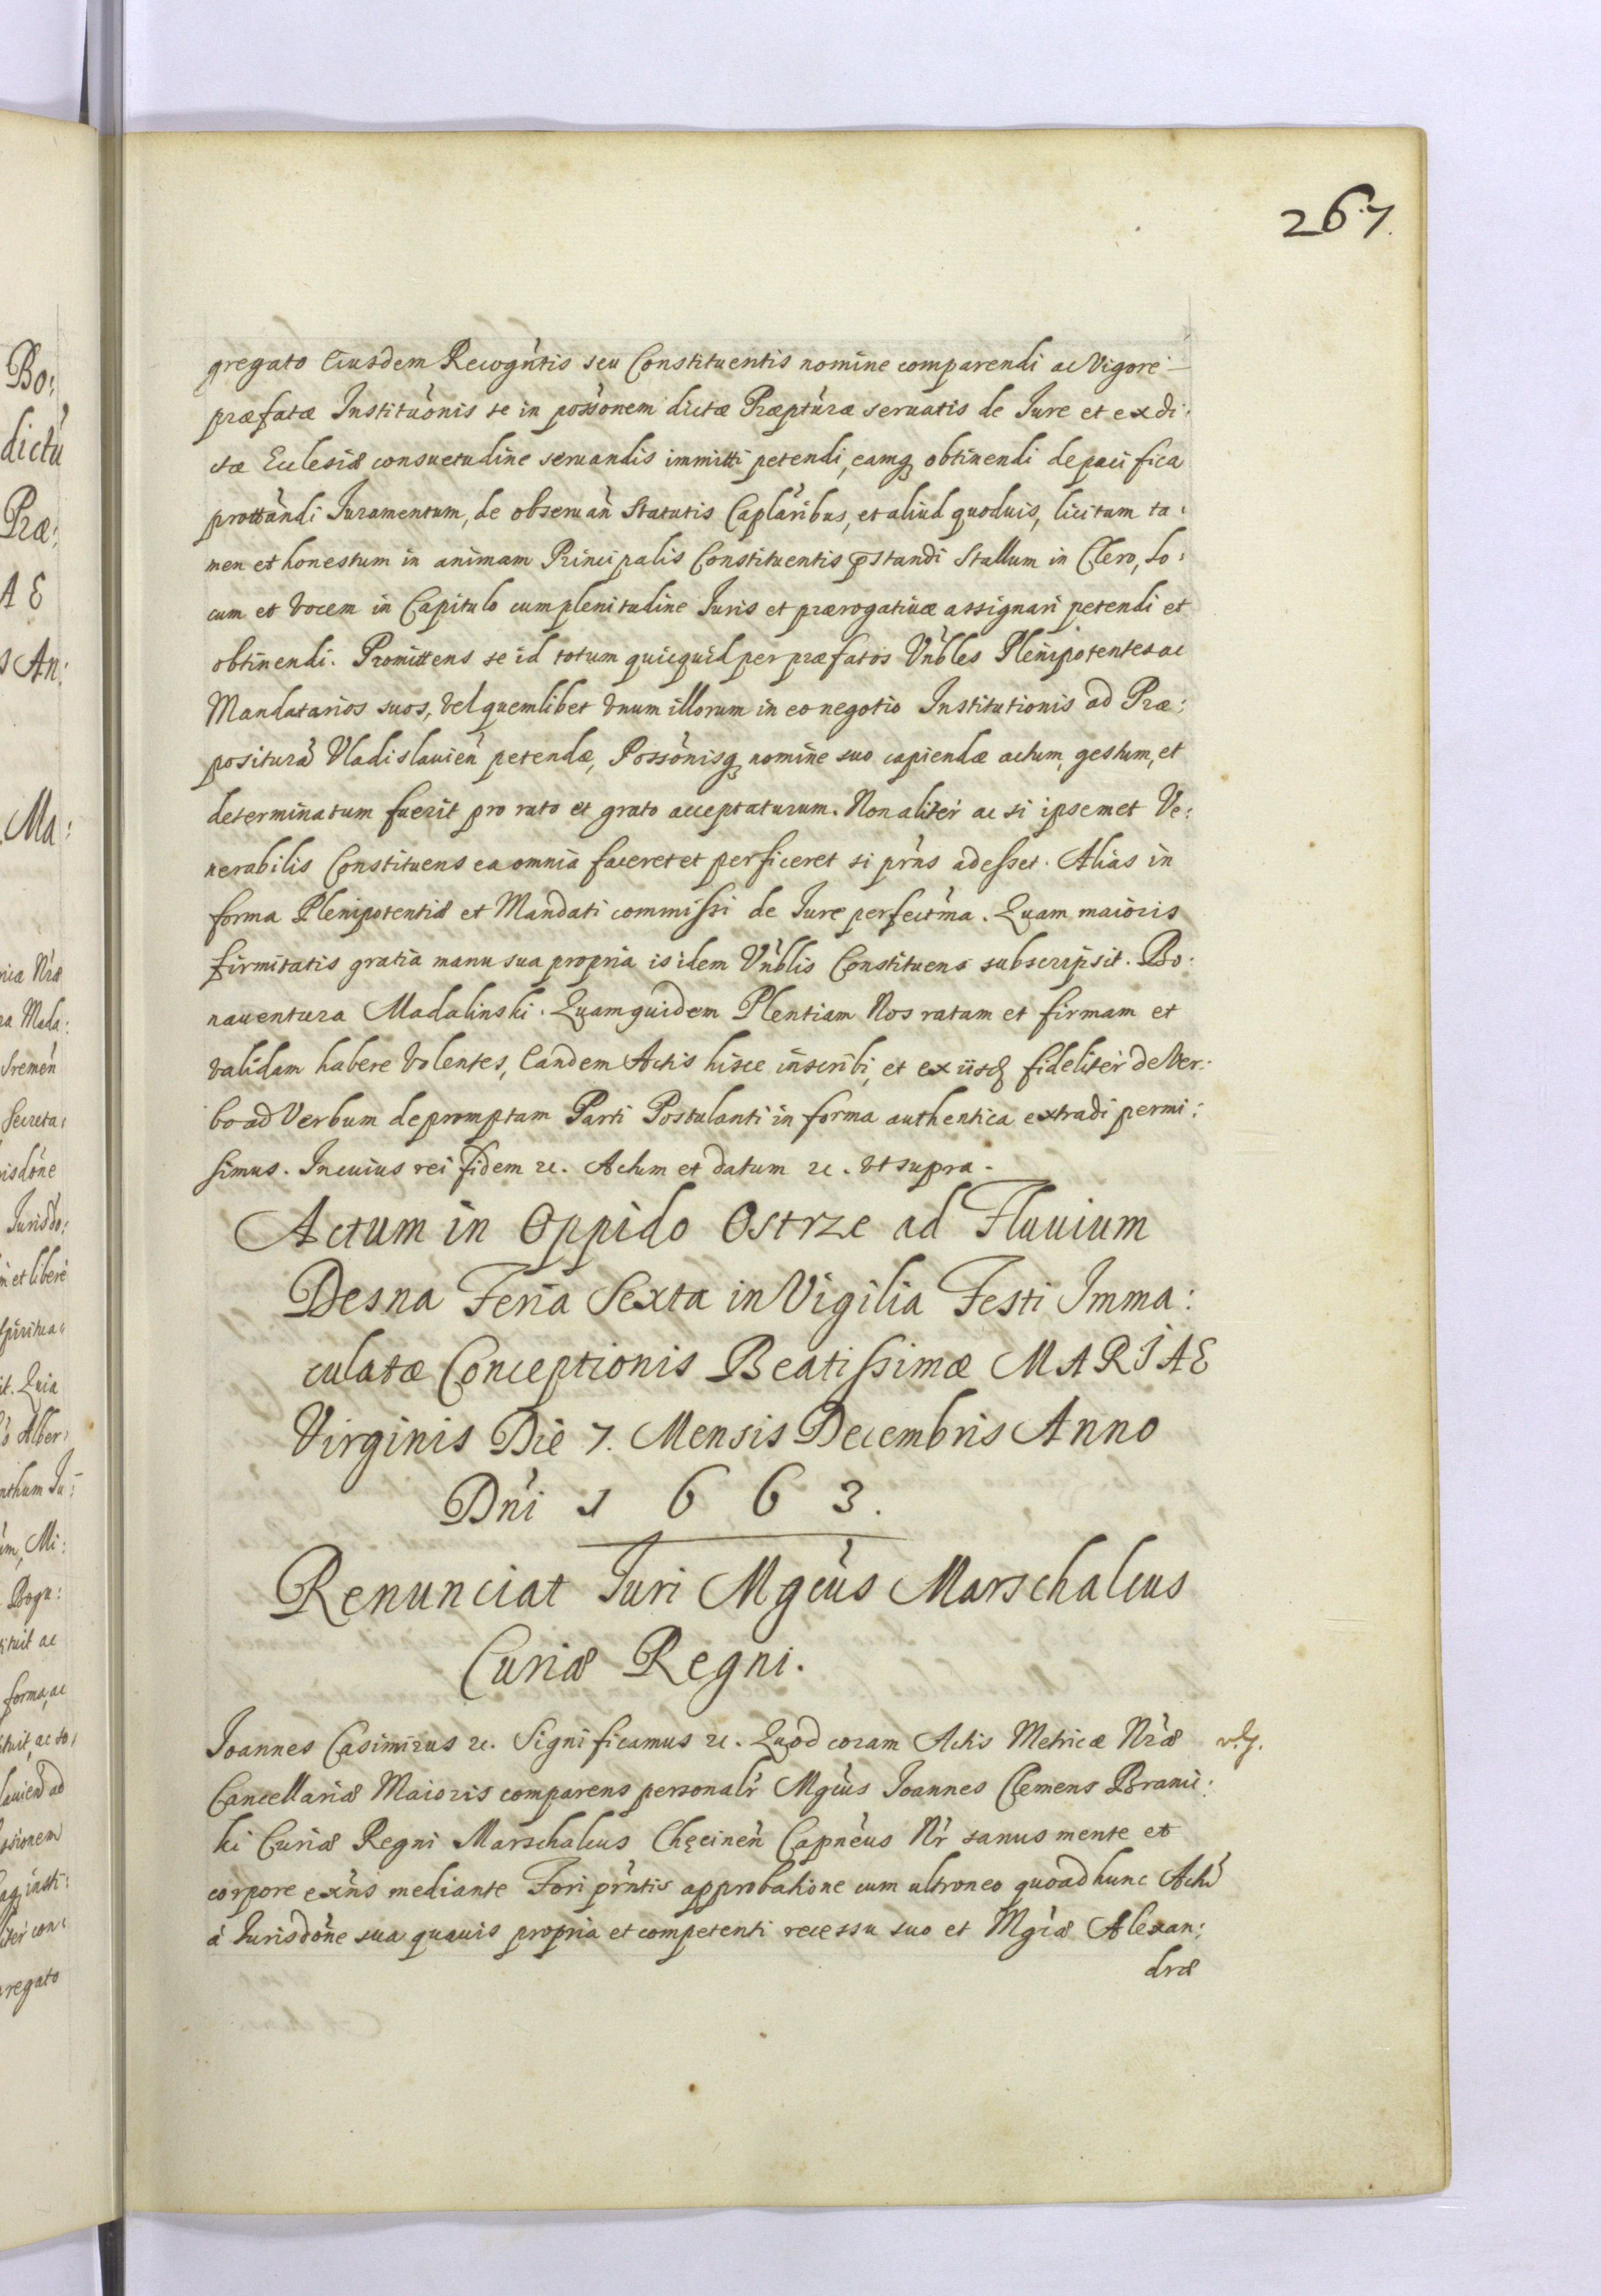 267.
gregato Eiusdem Recogn̄tis seu Constituentis nomine comparendi ac Vigore
præfatæ Institūonis se in possōnem dictæ Præptūræ seruatis de Jure et ex di:
ctæ Ecclesiæ consuetudine seruandis immitti petendi, eamq₃ obtinendi de pacifica
prottāndi Juramentum, de obseruan̄ Statutis Caplāribus, et aliud quoduis, licitum ta:
men et honestum in animam Principalis Constituentis p̄standi Stallum in Clero, Lo:
cum et Vocem in Capitulo cum plenitudine Juris et prærogatiuæ assignari petendi et
obtinendi. Promittens se id totum quicquid per præfatos Vn̄bles Plenipotentes ac
Mandatarios suos, Vel quemlibet Vnum illorum in eo negotio Institutionis ad Præ:
positurā Vladislauien̄ petendæ, Possōnisq₃ nomine suo capiendæ actum, gestum, et
determinatum fuerit pro rato et grato acceptaturum. Non aliter ac si ipsemet Ve:
nerabilis Constituens ea omnia faceret et perficeret si pr̄ns adesset. Alias in
forma Plenipotentiæ et Mandati commissi de Jure perfectm̄a. Quam maioris
firmitatis gratia manu sua propria is idem Vn̄blis Constituens subscripsit. Bo:
nauentura Madalinski. Quam quidem Plentiam Nos ratam et firmam et
validam habere Volentes, Eandem Actis hisce inscribi, et ex iisdē fideliter de Ver:
bo ad Verbum depromptam Parti Postulanti in forma authentica extradi permi:
simus. In cuius rei fidem &c. Actum et datum &c. Vt supra.
Actum in Oppido Ostrze ad Fluuium
Desna Feria Sexta in Vigilia Festi Imma:
culatæ Conceptionis Beatissimæ MARIAE
Virginis Die 7. Mensis Decembris Anno
Dn̄i 1 6 6 3.
Renunciat Juri Mgcūs Marschalcus
Curiæ Regni.
Joannes Casimirus &c. Significamus &c. Quod coram Actis Metricæ Nr̄æ
Cancellariæ Maioris comparens personalr̄ Mgcūs Joannes Clemens Branic:
ki Curiæ Regni Marschalcus Chęcinen̄ Capnēus Nr̄ sanus mente et
corpore exn̄s mediante Fori prn̄tis approbatione cum ultroneo quoad hunc Actū
à Jurisdōne sua quauis propria et competenti recessu suo et Mgcæ Alexan:
dræ